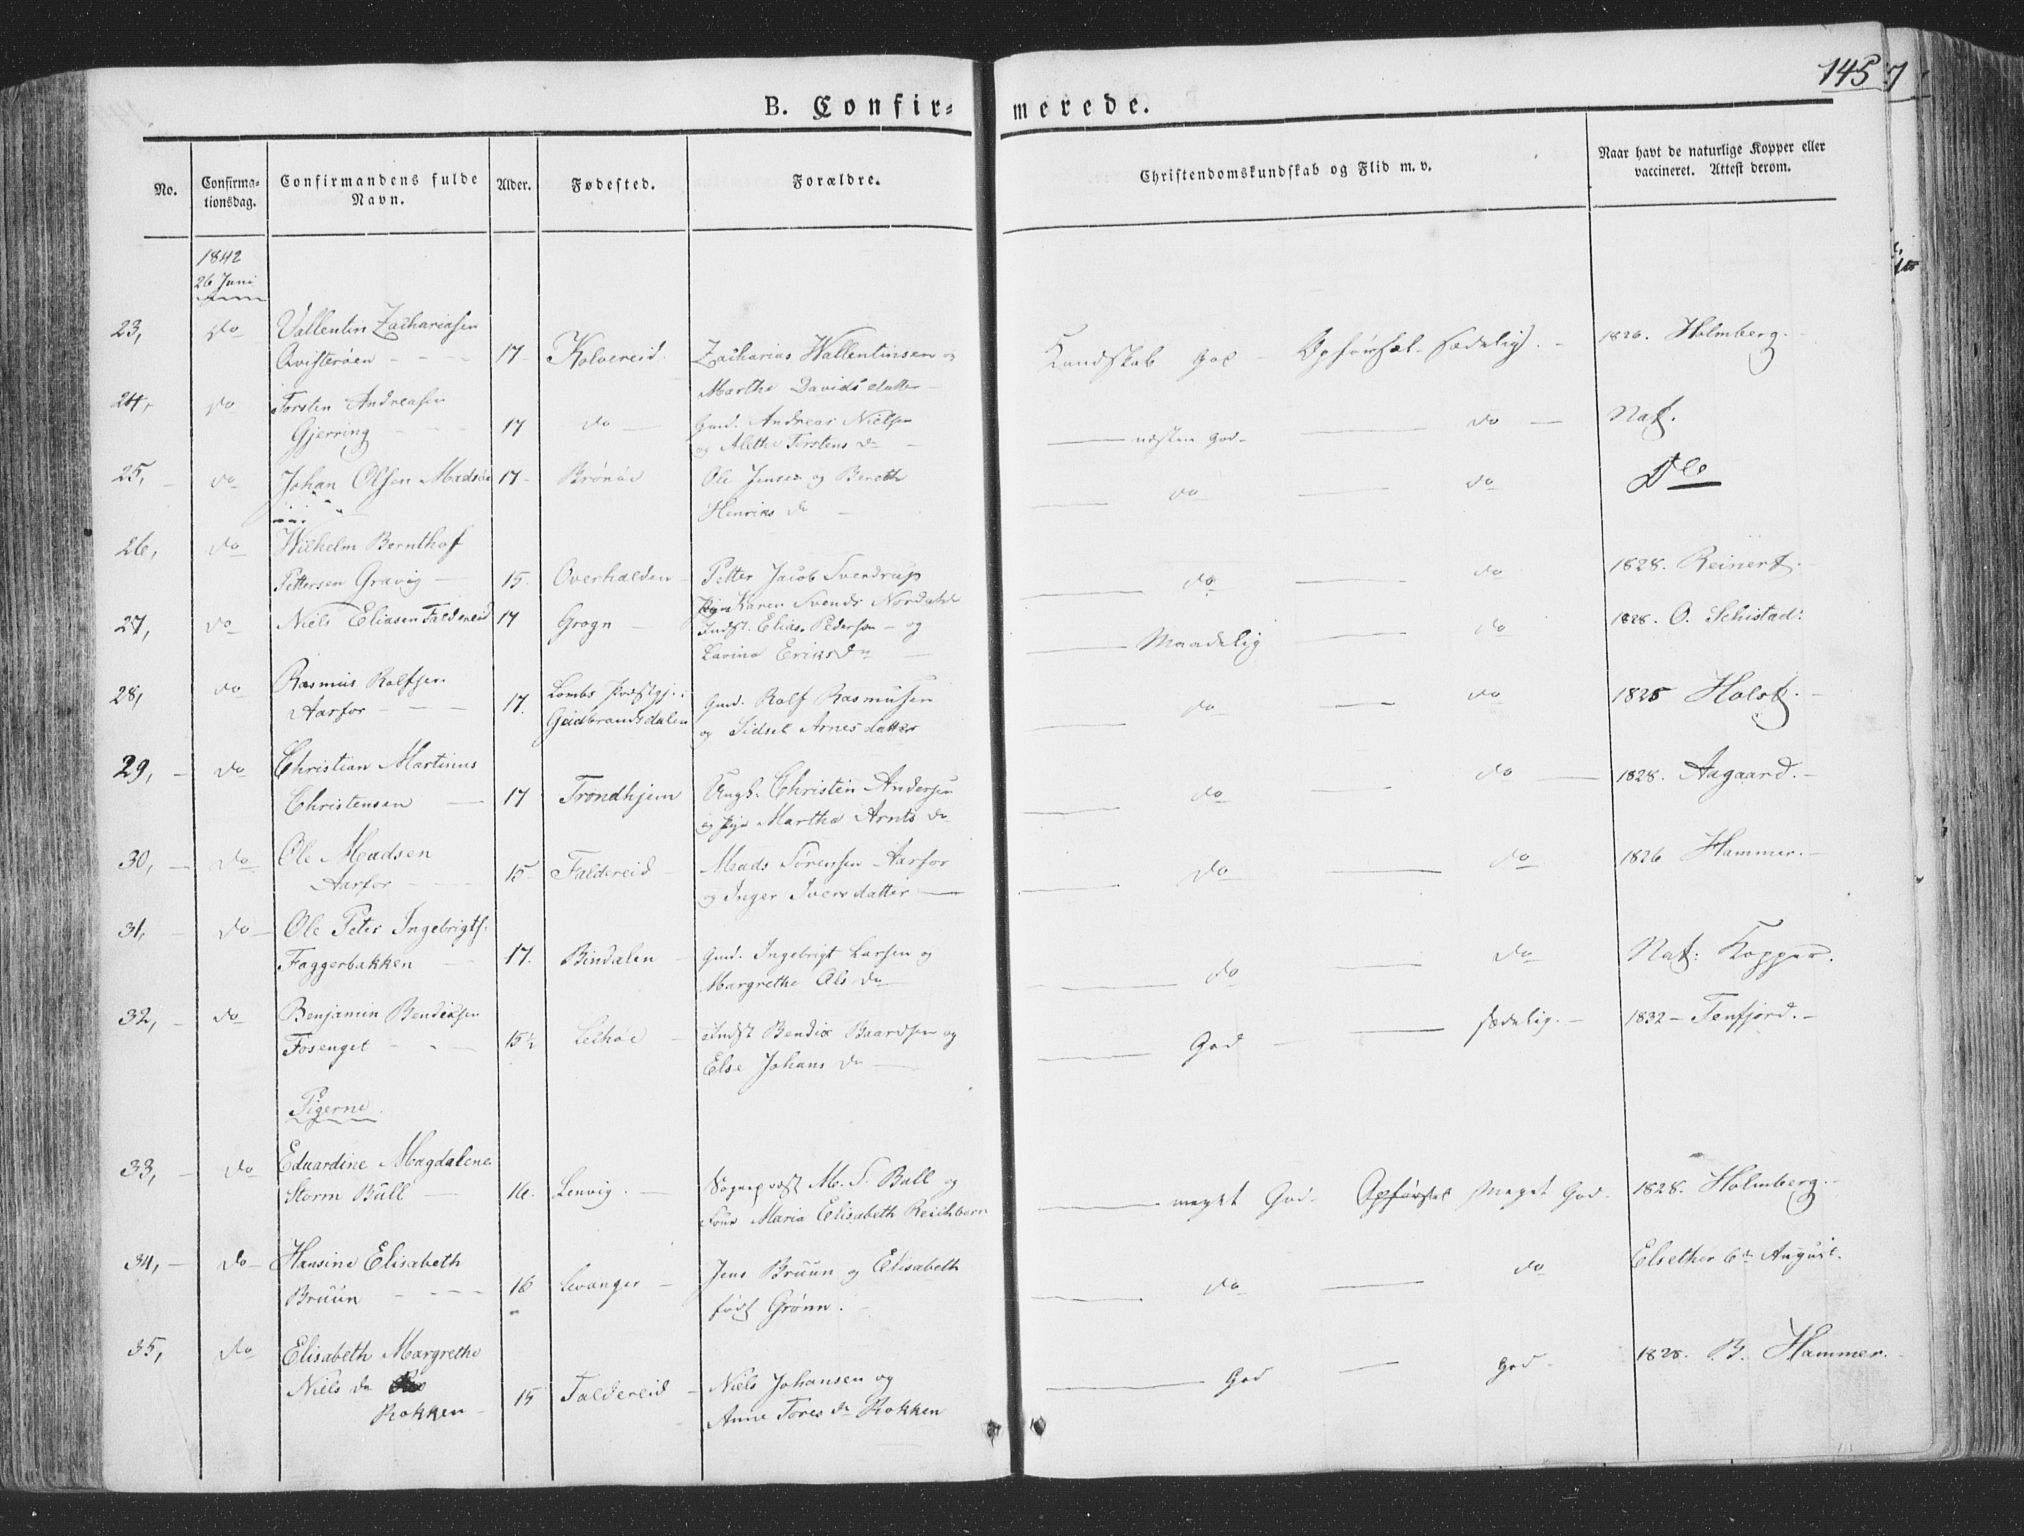 145
7
B. Confir=
merede.
No.
Confirma-
tionsdag.
Confirmandens fulde
Navn.
Alder.
Fødested.
Forældre.
Christendomskundskab og Flid m. v.
Naar havt de naturlige Kopper eller
vaccineret. Attest derom.
1842
26 Juni
23, do Vallentin Zachariasen
Qvisterøen 17 Kolvereid. Zacharias Wallentinsen og
Marthe Davids datter
Kundskab God Opførsel sædelig. 1826. Holmberg.
24, do Torsten Andreasen
Gjerring 17 do Gmd. Andreas Nielsen
og Alethe Torstens dr
næsten God do Nat.
25, do Johan Olsen Madsöe 17 Brönöe Ole Jensen og Bereth
Henriks dr
do do Do
26, do Wilhelm Bernthof
Pettersen Gravig 15. Overhalden Petter Jacob Svendrup
Pige Karen Svends Nordahl
do do 1828. Reinert.
27, do Niels Eliasen Faldereid 17 Grogn Indst. Elias Pedersen og
Lavina Eriks dr
Maadelig do 1828. O. Schistad:
28, do Rasmus Rolfsen
Aarfor 17. Lombs Præstgj.
Guldbrandsdalen Gmd. Rolf Rasmusen
og Sidsel Arnesdatter
do do 1825 Holst.
29, do Christian Martinus
Christensen 17 Trondhjem Ungk. Christen Andersen
og Pige Martha Arnts dr
do do 1828. Aagaard.
30, do Ole Madsen
Aarfor 15 Faldereid Mads Sörensen Aarfor
og Inger Iversdatter
do do 1826 Hammer.
31, do Ole Peter Ingebrigts.
Faggerbakken 17. Bindalen Gmd. Ingebrigt Larsen og
Margrethe Ols dr
do do Nat: Kopper.
32, do Benjamin Bendixsen
Fosenget 15½ Lekøe Indst Bendix Baardsen og
Else Johans dr
God sædelig. 1832 Tenfjord.
Pigerne.
33, do Eduardine Magdalene
Storm Bull 16. Lenvig. Sognepræst M. S. Bull og
Frue Maria Elisabeth Reichborn
meget God Opførsel Meget God. 1828. Holmberg.
34, do Hansine Elisabeth
Bruun 16 Levanger Jens Bruun og Elisabeth
født Grönn.
do do Elsether 6te August.
35, do Elisabeth Margrethe
Niels dr
Rokken 15 Faldereid Niels Johansen og
Anne Tores dr Rokken
God God 1828. B. Hammer.